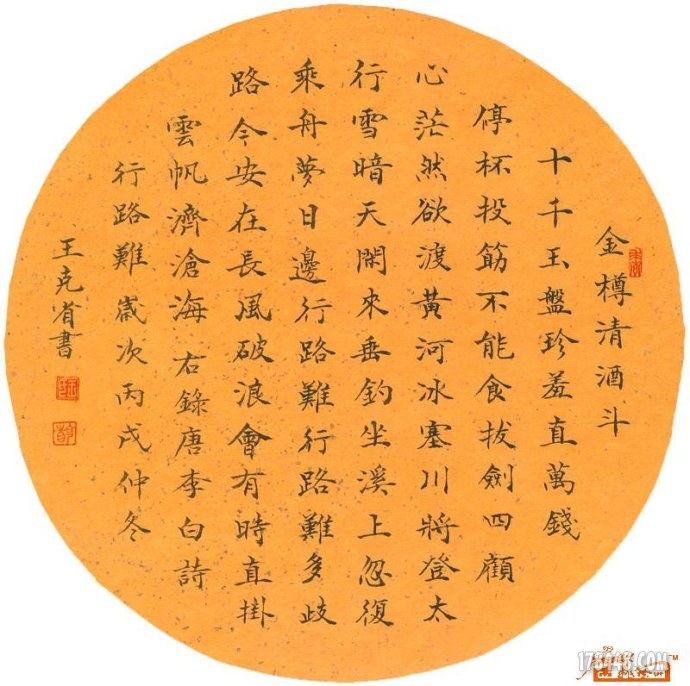 金樽清酒斗
十千玉盤珍羞直萬錢
停杯投筯不能食拔劍四顧
心茫然欲渡黃河冰塞川將登太
行雪暗天閑來垂釣坐溪上忽復
乘舟夢日邊行路難行路難多歧
路今安在長風破浪會有時直掛
雲帆濟滄海右錄唐李白詩
行路難歲次丙戌仲冬
王克省書
178448.com